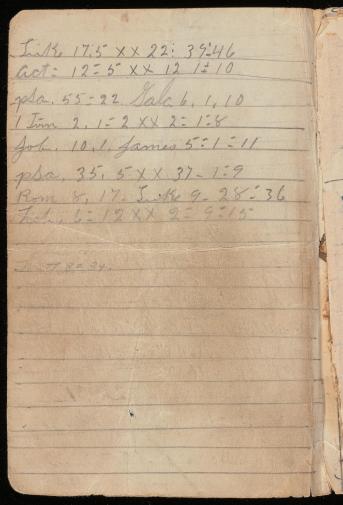 Luke 17:5 XX 22: 39-46
Act= 12=5 XX 12 1± 10
psa. 55=22 Gala 6, 1, 10
1 Tim 2, 1=2 XX 2=1=8
Job. 10, 1, James 5=1=11
psa, 35, 5 XX 37-1=9
Rom 8, 17- Luke 9- 28=36
6=12 XX 2=9=15
8=34.